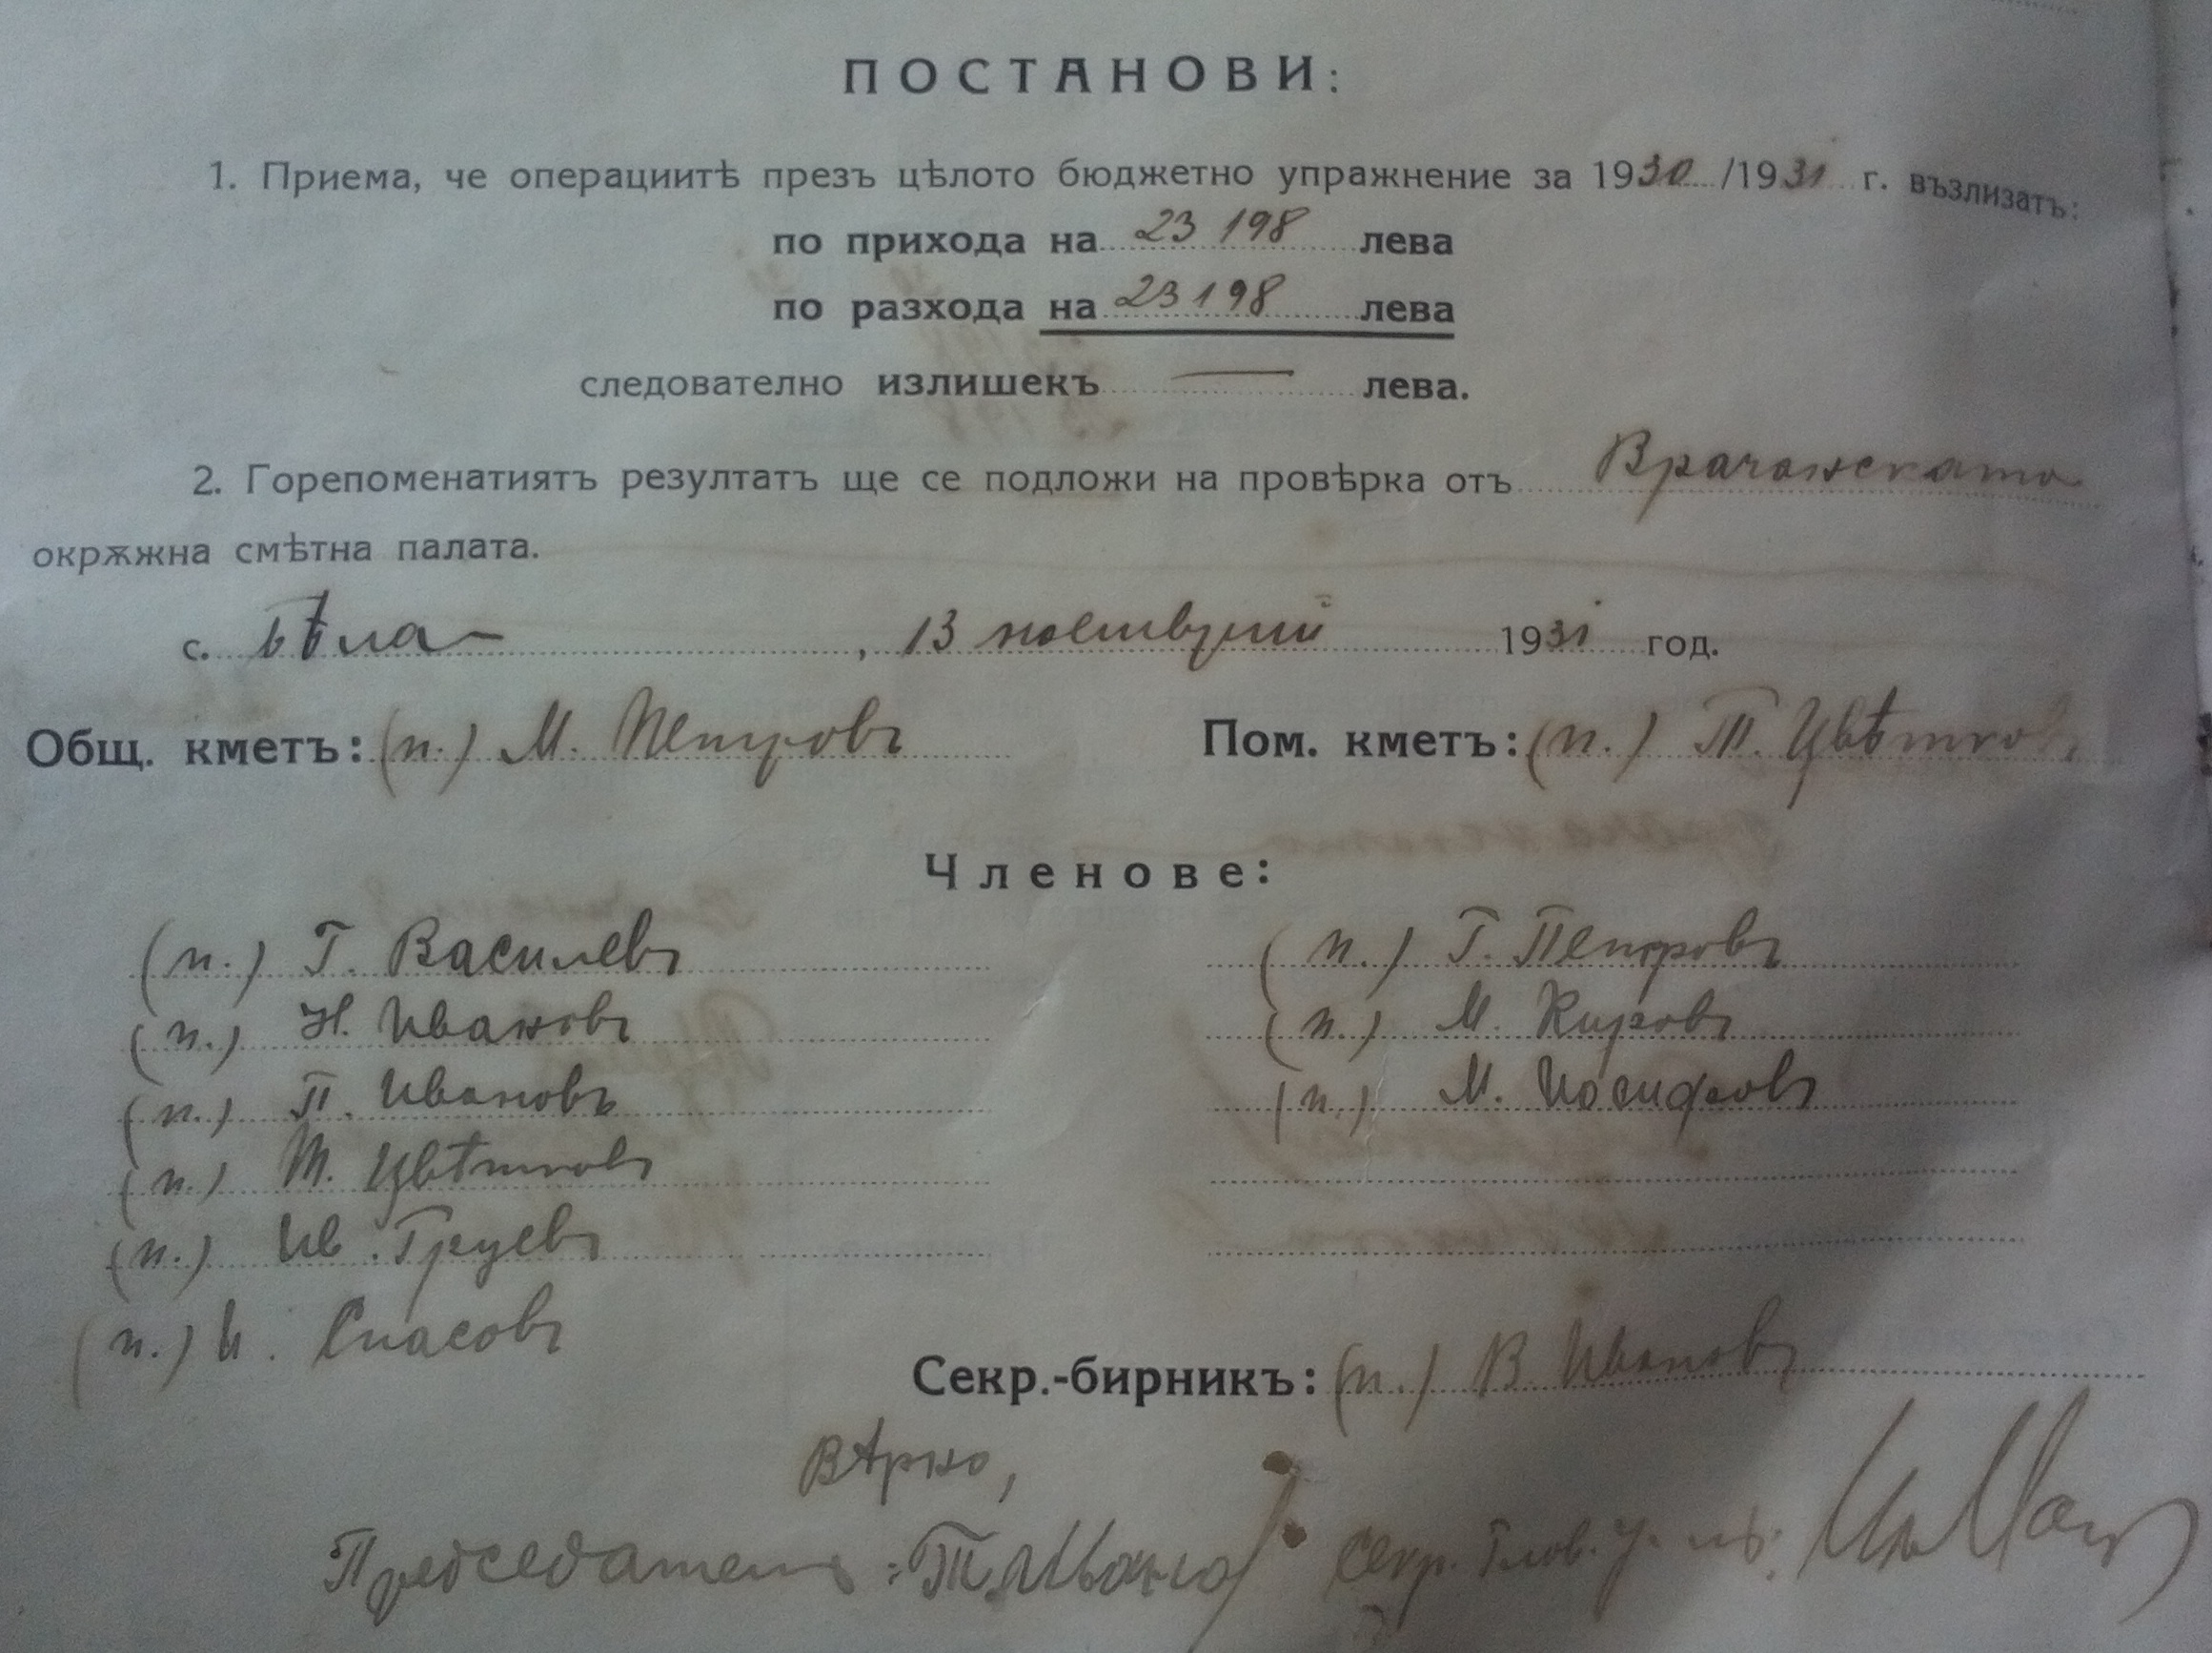 ПОСТАНОВИ:
1. Приема, че операциитѣ презъ цѣлото бюджетно упражнение за 1930/1931 г. възлизатъ:
по прихода на 23 198 лева
по разхода на 23198 лева
следователно излишекъ — лева.
2. Горепоменатиятъ резултатъ ще се подложи на провѣрка отъ Врачанската
окрѫжна смѣтна палата.
с. Бѣла , 13 ноемврий 1931 год.
Общ. кметъ: (п.) М. Петровъ Пом. кметъ: (п.) Т. Цвѣтковъ
Членове:
(п.) Г. Василевъ (п.) Г. Петровъ
(п.) Н. Ивановъ (п.) М. Кировъ
(п.) П. Ивановъ (п.) М. Йосифовъ
(п.) Т. Цвѣтковъ
(п.) Ив. Груевъ
(п.) И. Спасовъ
Секр.-бирникъ: (п.) В. Ивановъ
Вѣрно,
Председатель: Секр.